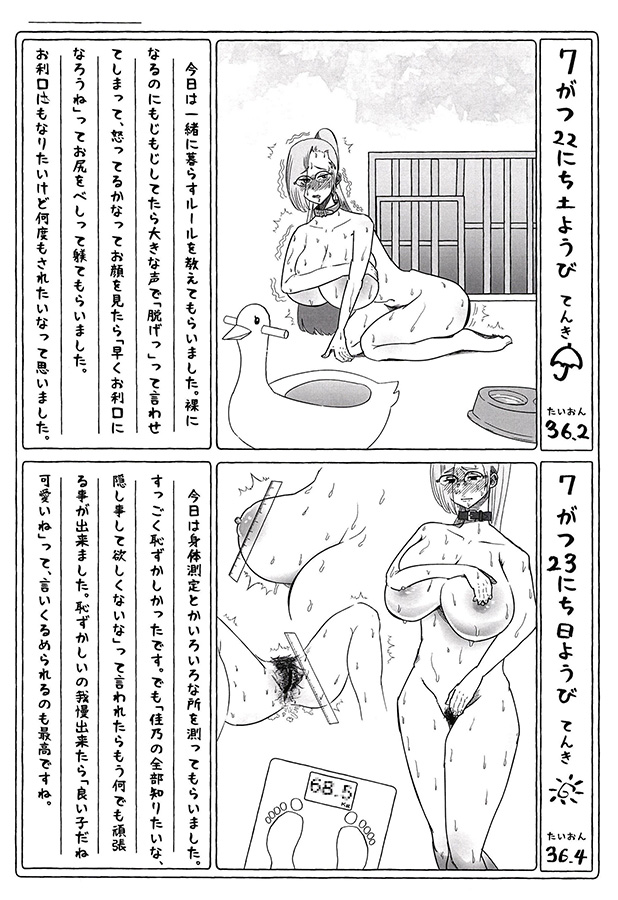 7がつ22にち土ようび てんき
たいおん
36.2
今日は一緒に暮らすルールを教えてもらいました。裸に
なるのにもじもじしてたら大きな声で「脱げっ」って言わせ
てしまって、怒ってるかなってお顔を見たら「早くお利口に
なろうね」ってお尻をべしって躾てもらいました。
お利口にもなりたいけど何度もされたいなって思いました。
7がつ23にち日ようび てんき
たいおん
36.4
68.5
Kg
今日は身体測定とかいろいろな所を測ってもらいました。
すっごく恥ずかしかったです。でも「佳乃の全部知りたいな、
隠し事して欲しくないな」って言われたらもう何でも頑張
る事が出来ました。恥ずかしいの我慢出来たら「良い子だね
可愛いね」って、言いくるめられるのも最高ですね。